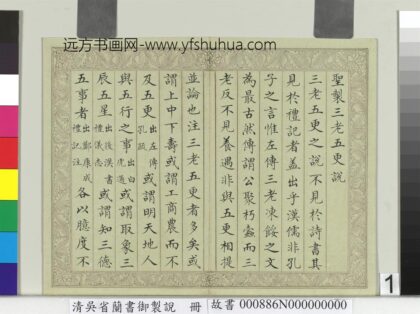 远方书画网-www.yfshuhua.com
聖製三老五更說
三老五更之說不見於詩書其
見於禮記者蓋出乎漢儒非孔
子之言惟左傳三老凍餒之文
為最古然傳謂公聚朽蠹而三
老反不見養遇非與五更相提
並論也注三老五更者多矣或
謂上中下壽或謂工商農而不
及五更出左傳孔疏或謂明天地人
與五行之事出白虎通或謂取象三
辰五星出後漢書禮儀志或謂知三德
五事者鄭康成禮記注各以臆度不
1
清吳省蘭書御製說 冊
故書 000886N000000000